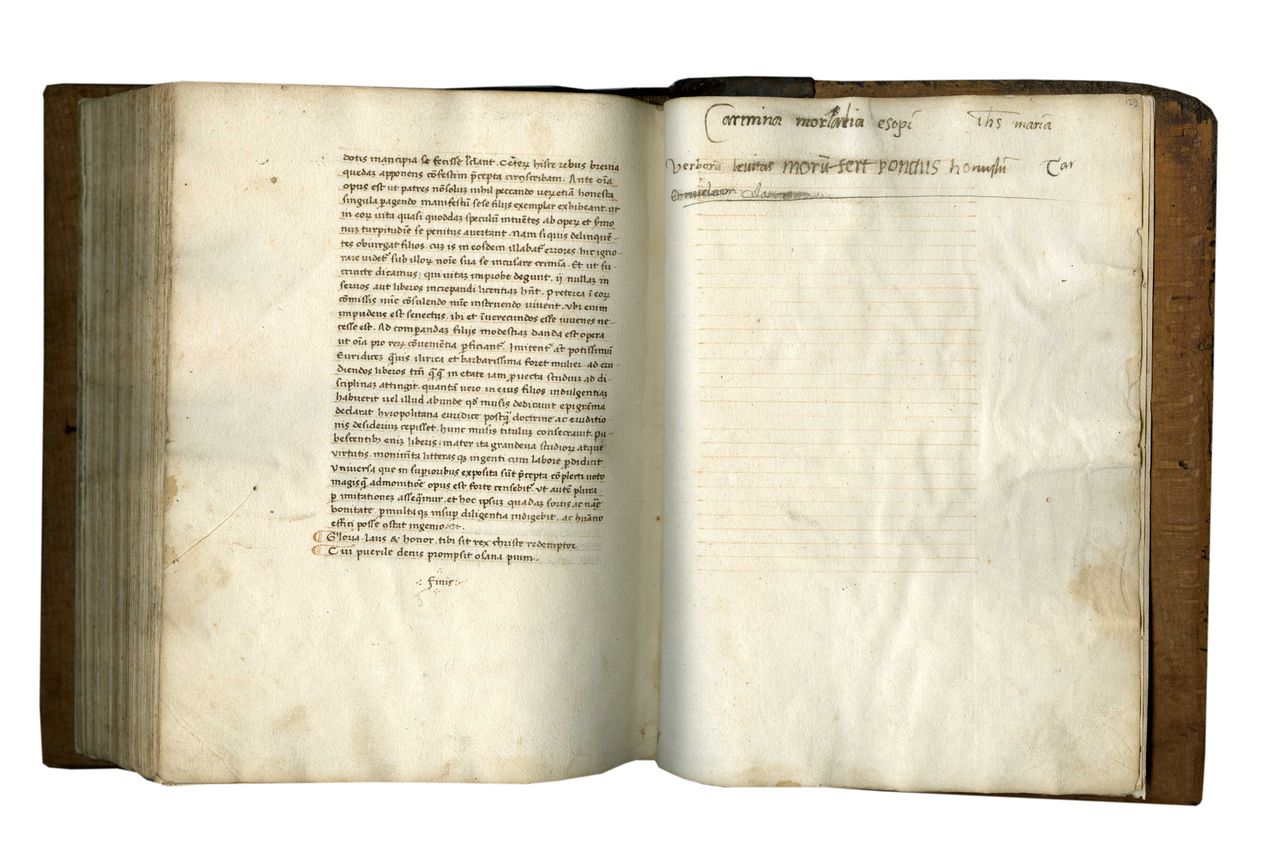 dotis mancipia se fecisse sciant. Ceterꝝ hisce rebus brevia
quedaꝫ apponens cōfestim p̄cepta circūscribam. Ante oīa
opus est ut patres nō solum nihil peccando verꝫ etiā honesta
singula pagendo manifestū sese filijs exemplar exhibeant. ut
in eorꝝ vita quasi quoddaꝫ speculū intuētes ab operꝫ et s̄mo
num turpitudīe se penitus avertant. Nam si quis delinquē-
tes obiurgat filios. cuꝫ is in eosdem illabat̄ errores. hic igno-
rare videt̄ sub illorꝝ noīe sua se incusare crimīa. Et ut suc
cincte dicamus: qui vitaꝫ improbe degunt. ij nullaꝫ in
servos aut liberos increpandi licentiaꝫ hn̄t. Preterea ī eorꝝ
cōmissis nūc cōsulendo nūc instruendo vivent. Vbi enim
impudens est senectus. ibi et īverecundos esse iuvenes ne-
cesse est. Ad comparandaꝫ filijs modestiaꝫ danda est opera
ut oīa pro rerꝝ cōvenientia ꝑficiant̄. Imitent̄ at̄ potissimū
Euridiceꝫ q̄uis ilirica et barbarissima foret mulier. ad eru
diendos liberos tm̄ q̄q̄ in etate iam ꝓvecta studiuꝫ ad di-
sciplinas attingit. quantā vero in eius filios indulgentiaꝫ
habuerit vel illud abunde qd̄ musis dedicavit epigrāma
declarat hyropolitana euridice postq̄ doctrine ac eruditio-
nis desideriuꝫ cepisset. hunc musis tituluꝫ consecravit. Pu-
bescentibꝫ eniꝫ liberis: mater ita grandeva studiorꝝ atqꝫ
virtutis. monimēta litteras qꝫ ingenti cum labore ꝑdidicit
Vniversa que in supioribus exposita sūt p̄cepta cōplecti voto
magisqꝫ admonitiōe opus est forte censebit̄. Vt autē plura
ꝑ imitationeꝫ asseq̄mur. et hoc ipsuꝫ quadaꝫ sortis ac nāe
bonitate ꝑmultaqꝫ insuꝑ diligentia indigebit. ac hūano
effici posse ɔstat ingenio. et.
Gloria. laus & honor. tibi sit rex christe redemptor
Cui puerile decus prompsit osana pium.
Finis
129
Carmina morłalia esopi ihs maria
Verborū brevitas morū fert pondus honustū Car